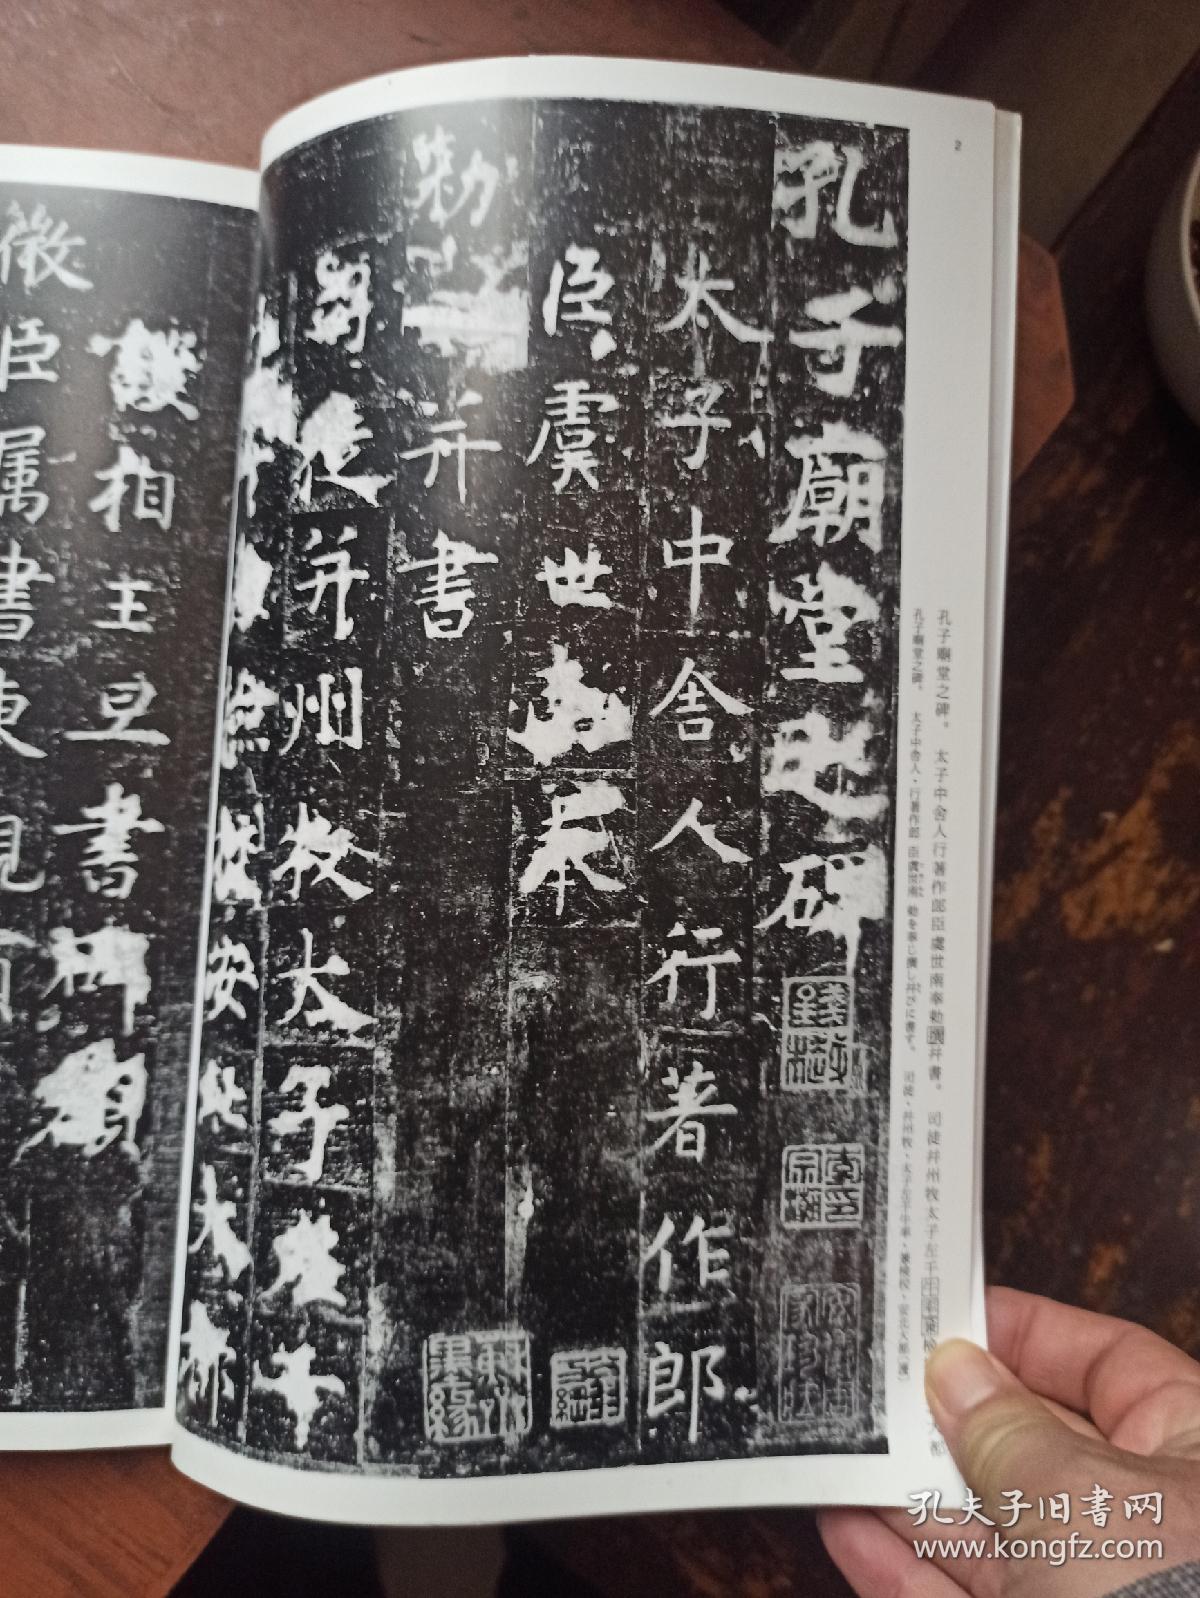 2
孔子廟堂之碑
太子中舍人行著作郎
臣虞世南奉
勑
并書
司徒并州牧太子左千牛
檢校安北大都
孔子廟堂之碑。 太子中舍人行著作郎臣虞世南奉勅撰并書。 司徒并州牧太子左千牛率兼檢
大都
孔子廟堂之碑。 太子中舍人・行著作郎 臣虞世南 勅を奉じ撰し并びに書す。 司徒・并州牧・太子左千牛率・兼檢校・安北大都(護)
相王旦書碑額
微臣屬書東觀預
孔夫子旧書网
www.kongfz.com